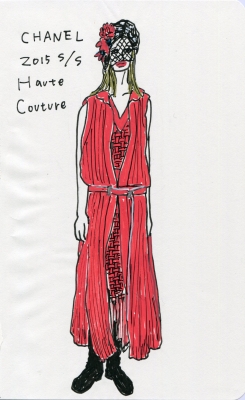 CHANEL
2015 S/S
Haute
Couture